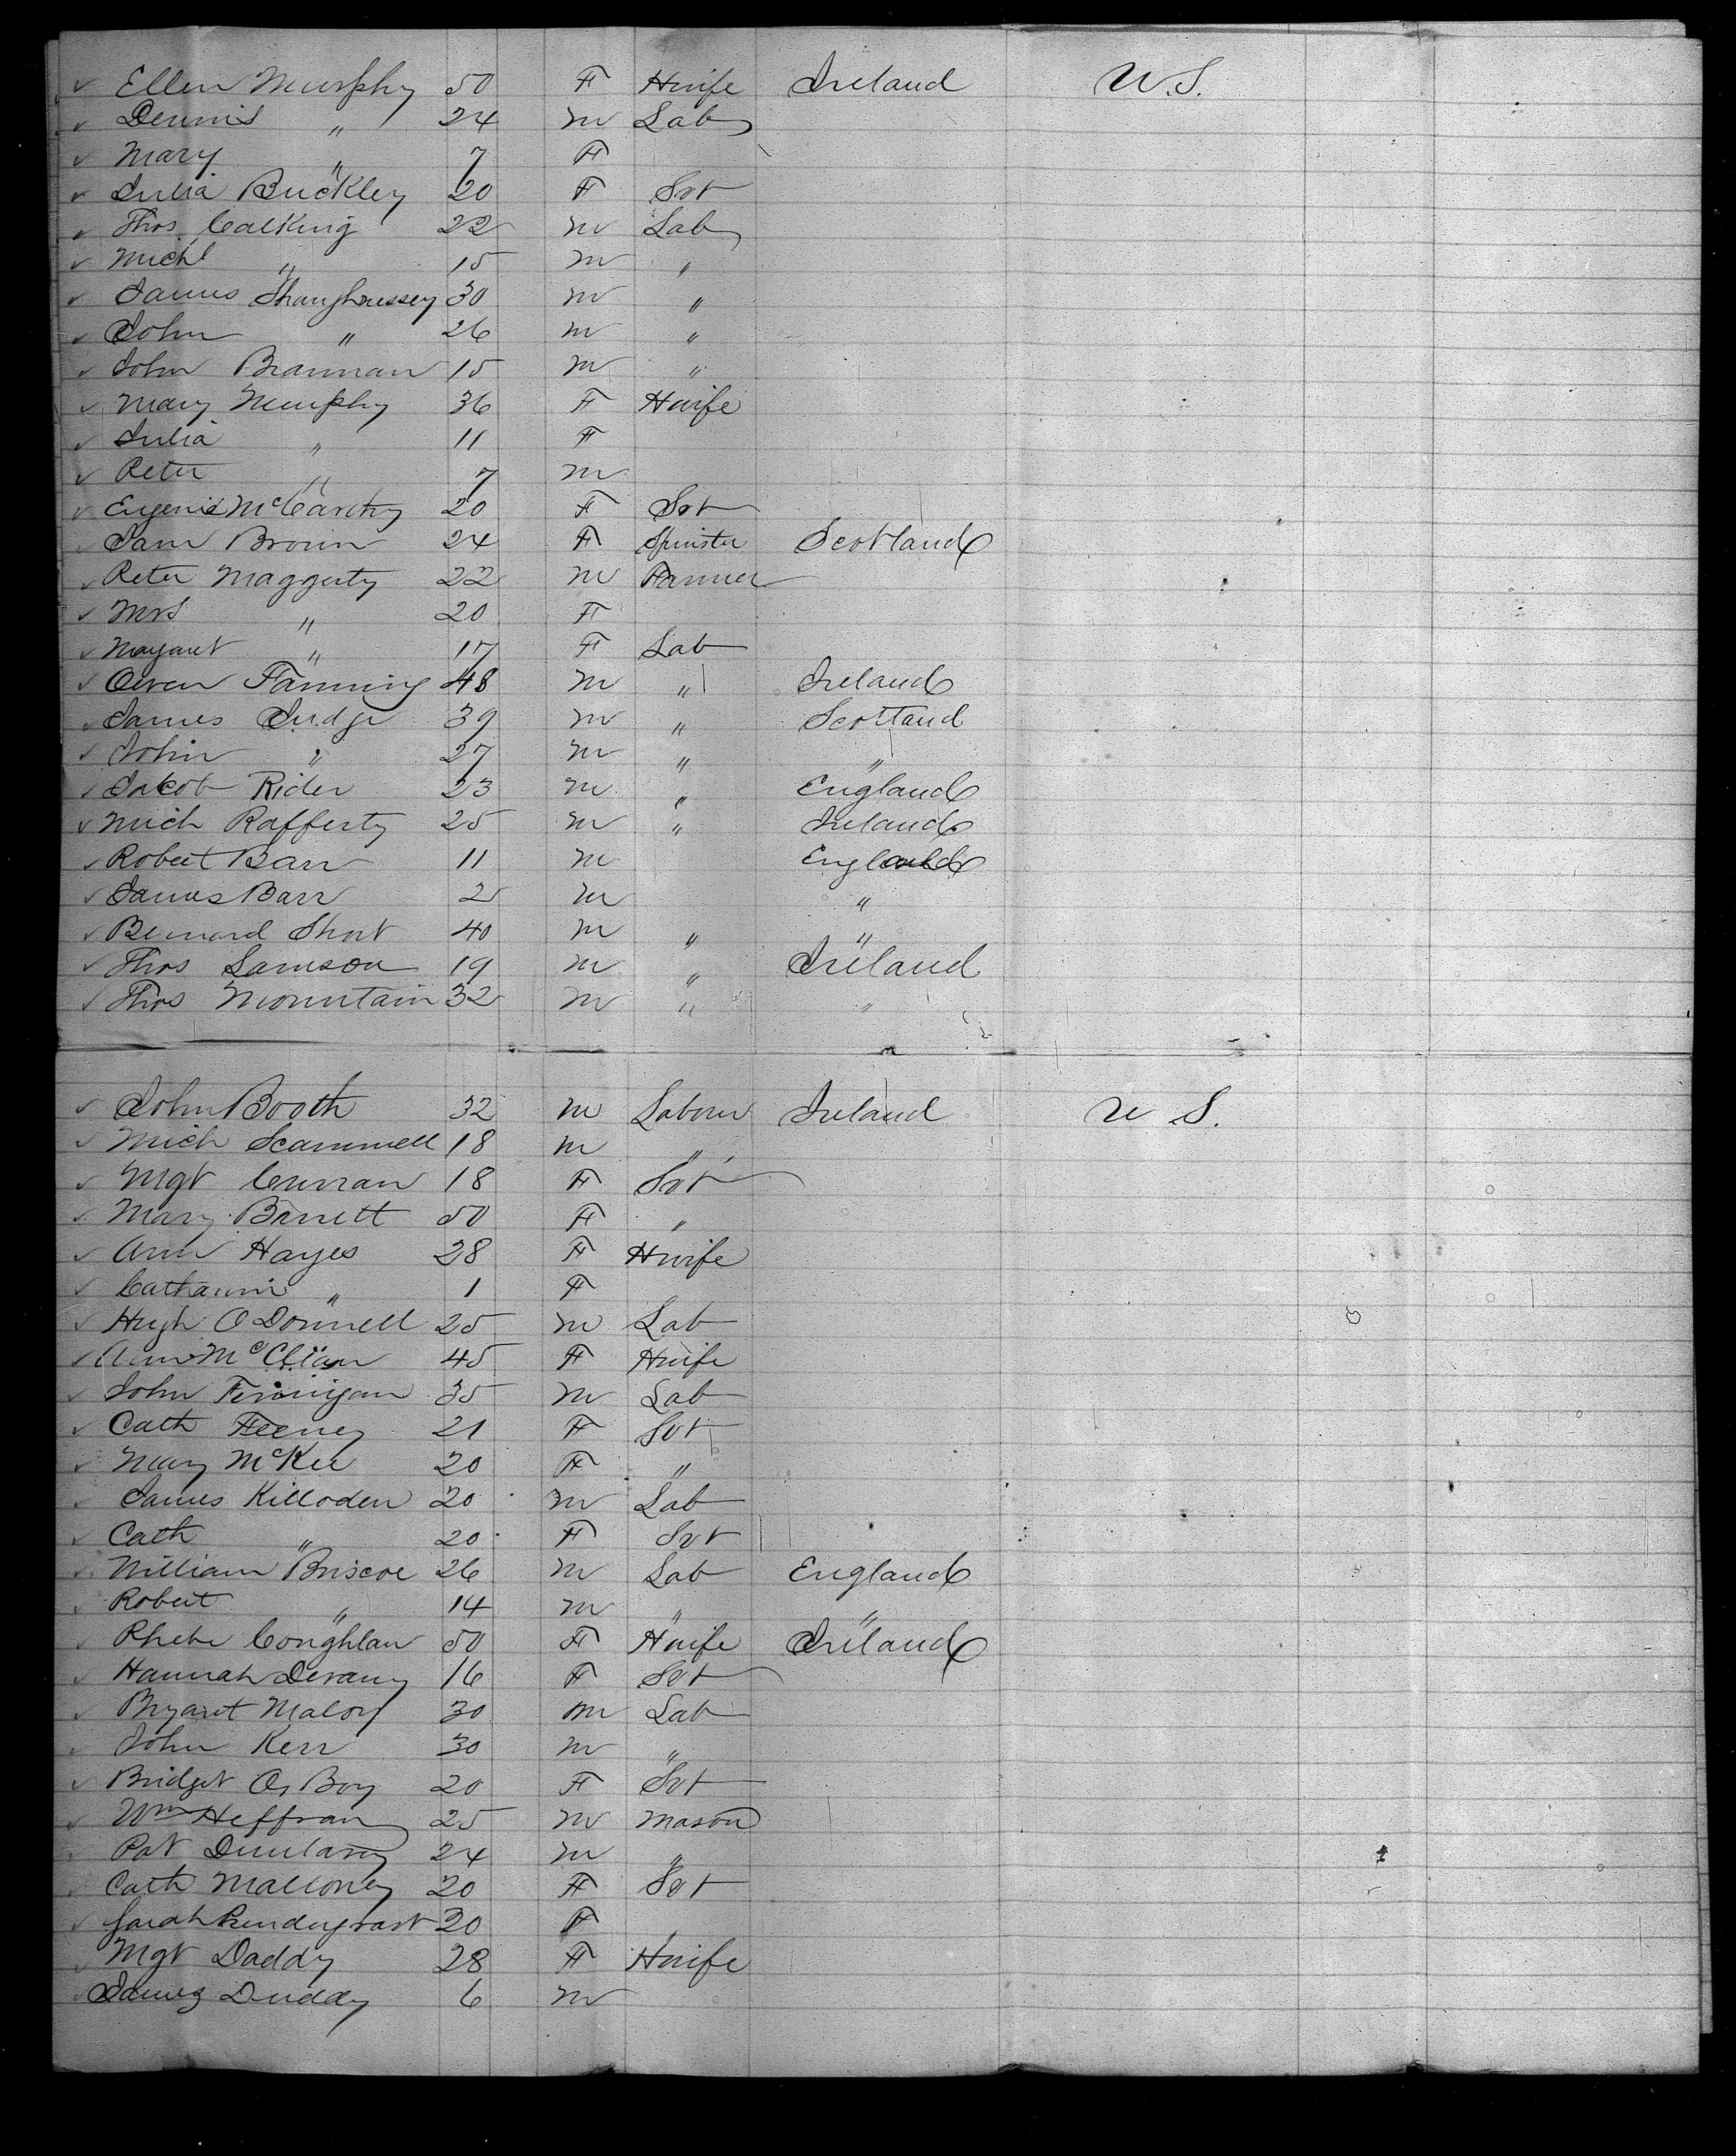 Ellen Murphy 50 F Hwife Ireland U.S.
Dennis " 24 m Lab
Mary " 7 F
Julia Buckley 20 F Svt
Thos Calking 22 m Lab
Michl " 15 m "
James Shaughnessey 30 m "
John " 26 m "
John Brannan 15 m "
Mary Murphy 36 F Hwife
Julia " 11 F
Peter " 7 m
Eugenie McCarthy 20 F Svt
Jane Brown 24 F Spinster Scotland
Peter Maggerty 22 m Farmer
Mrs " 20 F
Margaret " 17 F Lab
Owen Fanning 48 m " Ireland
James Judge 39 m " Scotland
John " 27 m " "
Jakob Rider 23 m " England
Mich Rafferty 25 m " Ireland
Robert Barr 11 m England
James Barr 2 m "
Bernard Short 40 m " "
Thos Samson 19 m " Ireland
Thos Mountain 32 m " "
John Booth 32 m Labour Ireland U S.
Mich Scammell 18 m "
Mgt Curran 18 F Svt
Mary Barrett 50 F "
Ann Hayes 28 F Hwife
Catharine " 1 F
Hugh O Donnell 25 m Lab
Ann 45 F Hwife
John Finnigan 35 m Lab
Cath Feeney 21 F Svt
Mary McKee 20 F "
James Killoden 20 m Lab
Cath " 20 F Svt
William Briscoe 26 m Lab England
Robert " 14 m " "
Phebe Coughlan 50 F Hwife Ireland
Hannah Devany 16 F Svt
Bryant Maloy 30 m Lab
John Kerr 30 m "
Bridget Oy Boy 20 F Svt
Wm Heffran 25 m Mason
Pat 24 m "
Cath Malloney 20 F Svt
Sarah Prendergrast 20 F
Mgt Daddy 28 F Hwife
James Duddy 6 m